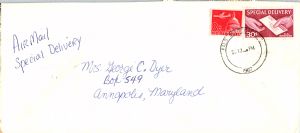 AirMail
Special Delivery
SPECIAL DELIVERY
30¢
PM
Mrs. George C. Dyer
Box 549
Annapolis, Maryland